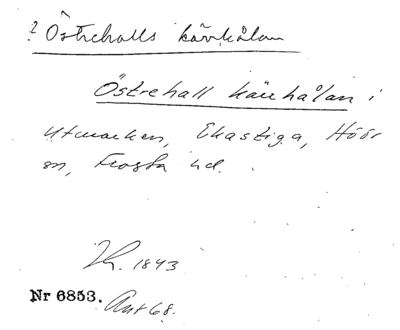 ? Östrehalls kärrhålan
Östrehall kärrhålan i
utmarken, Ekastiga, Höör
sn, Frosta hd.
1843
Nr 6853. Ant 68.